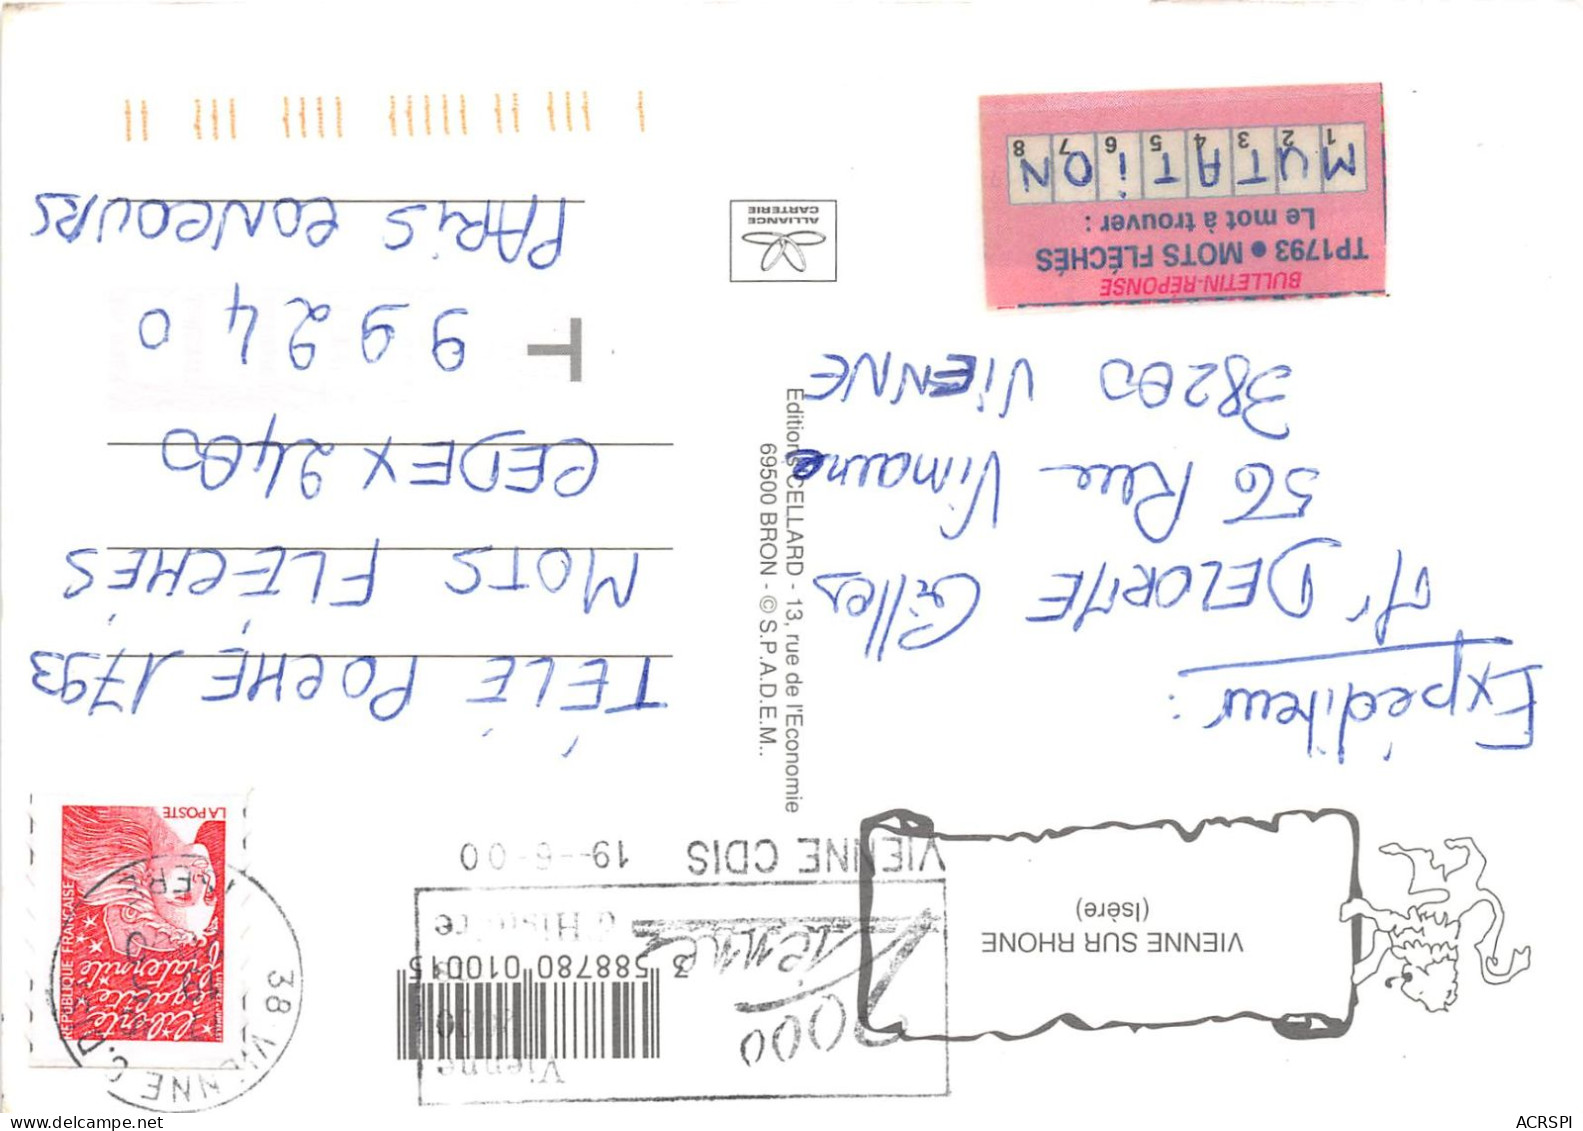 VIENNE SUR RHONE
(Isère)
Expéditeur :
Mr DELORME Gilles
56 Rue Vimaine
38200 VIENNE
BULLETIN-RÉPONSE
TP1793 ● MOTS FLÉCHÉS
Le mot à trouver :
MUTATION
1 2 3 4 5 6 7 8
Editions CELLARD - 13, rue de l'Economie
69500 BRON - © S.P.A.D.E.M..
ALLIANCE
CARTERIE
3 588780 010015
Vienne
2000
Vienne
2000
d'Histoire
VIENNE CDIS 19-6-00
38 VIENNE C.DIS
ISERE
LA POSTE
RÉPUBLIQUE FRANÇAISE
Liberté
Égalité
Fraternité
TÉLÉ POCHE 1793
MOTS FLÉCHÉS
CEDEX 2400
T 99240
PARIS CONCOURS
ACRSPI